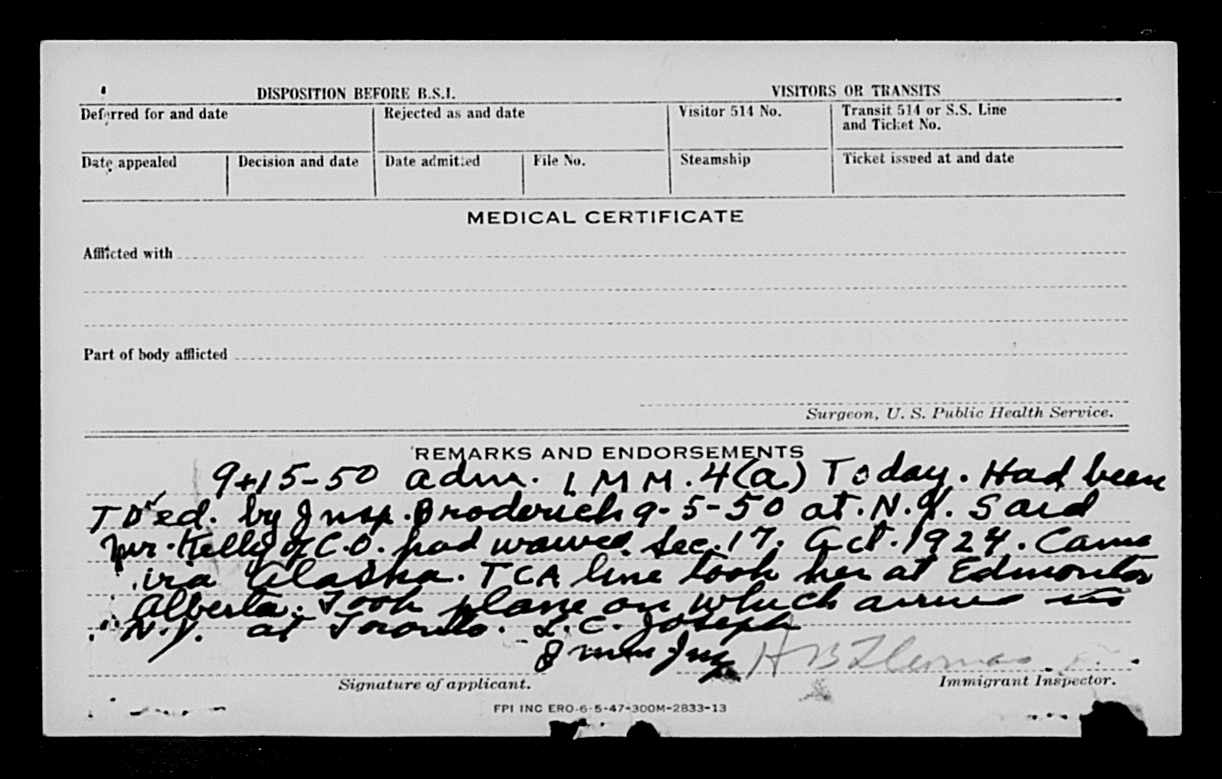 DISPOSITION BEFORE B.S.I. VISITORS OR TRANSITS
Deferred for and date Rejected as and date Visitor 514 No. Transit 514 or S.S. Line
and Ticket No.
Date appealed Decision and date Date admitted File No. Steamship Ticket issued at and date
MEDICAL CERTIFICATE
Afflicted with
Part of body afflicted
Surgeon, U. S. Public Health Service.
REMARKS AND ENDORSEMENTS
9-15-50 adm. IMM. 4(a) Today. Had been
TD'ed. by Insp. Broderick 9-5-50 at N.Y. Said
Mr. Kelly of C.O. had waived Sec. 17. Act. 1924. Came
via Alaska. TCA line took her at Edmonton
Alberta. Took plane on which arrived
N.Y. at Toronto. L.C. Joseph
Imm Insp H B Thomas
Signature of applicant. Immigrant Inspector.
FPI INC ERO-6-5-47-300M-2833-13